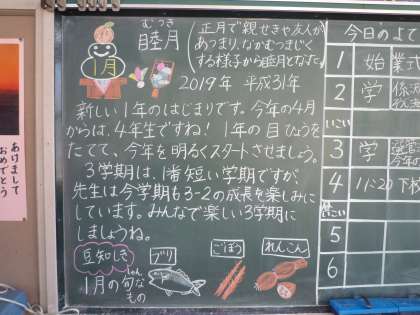 むつき
睦月
(正月で親せきや友人が
あつまり、なかむつまじく
する様子から睦月となった。)
1月
2019年 平成31年
新しい1年のはじまりです。今年の4月
からは、4年生ですね!1年の目ひょうを
たてて、今年を明るくスタートさせましょう。
3学期は、1番短い学期ですが、
先生は今学期も3-2の成長を楽しみに
しています。みんなで楽しい3学期に
しましょうね。
豆知しき
1月の旬なもの
しゅん
ブリ
ごぼう
れんこん
今日のよて
1 始業式
2 学
3 学
4 11:20 下校
5
6
あけまして
おめでとう